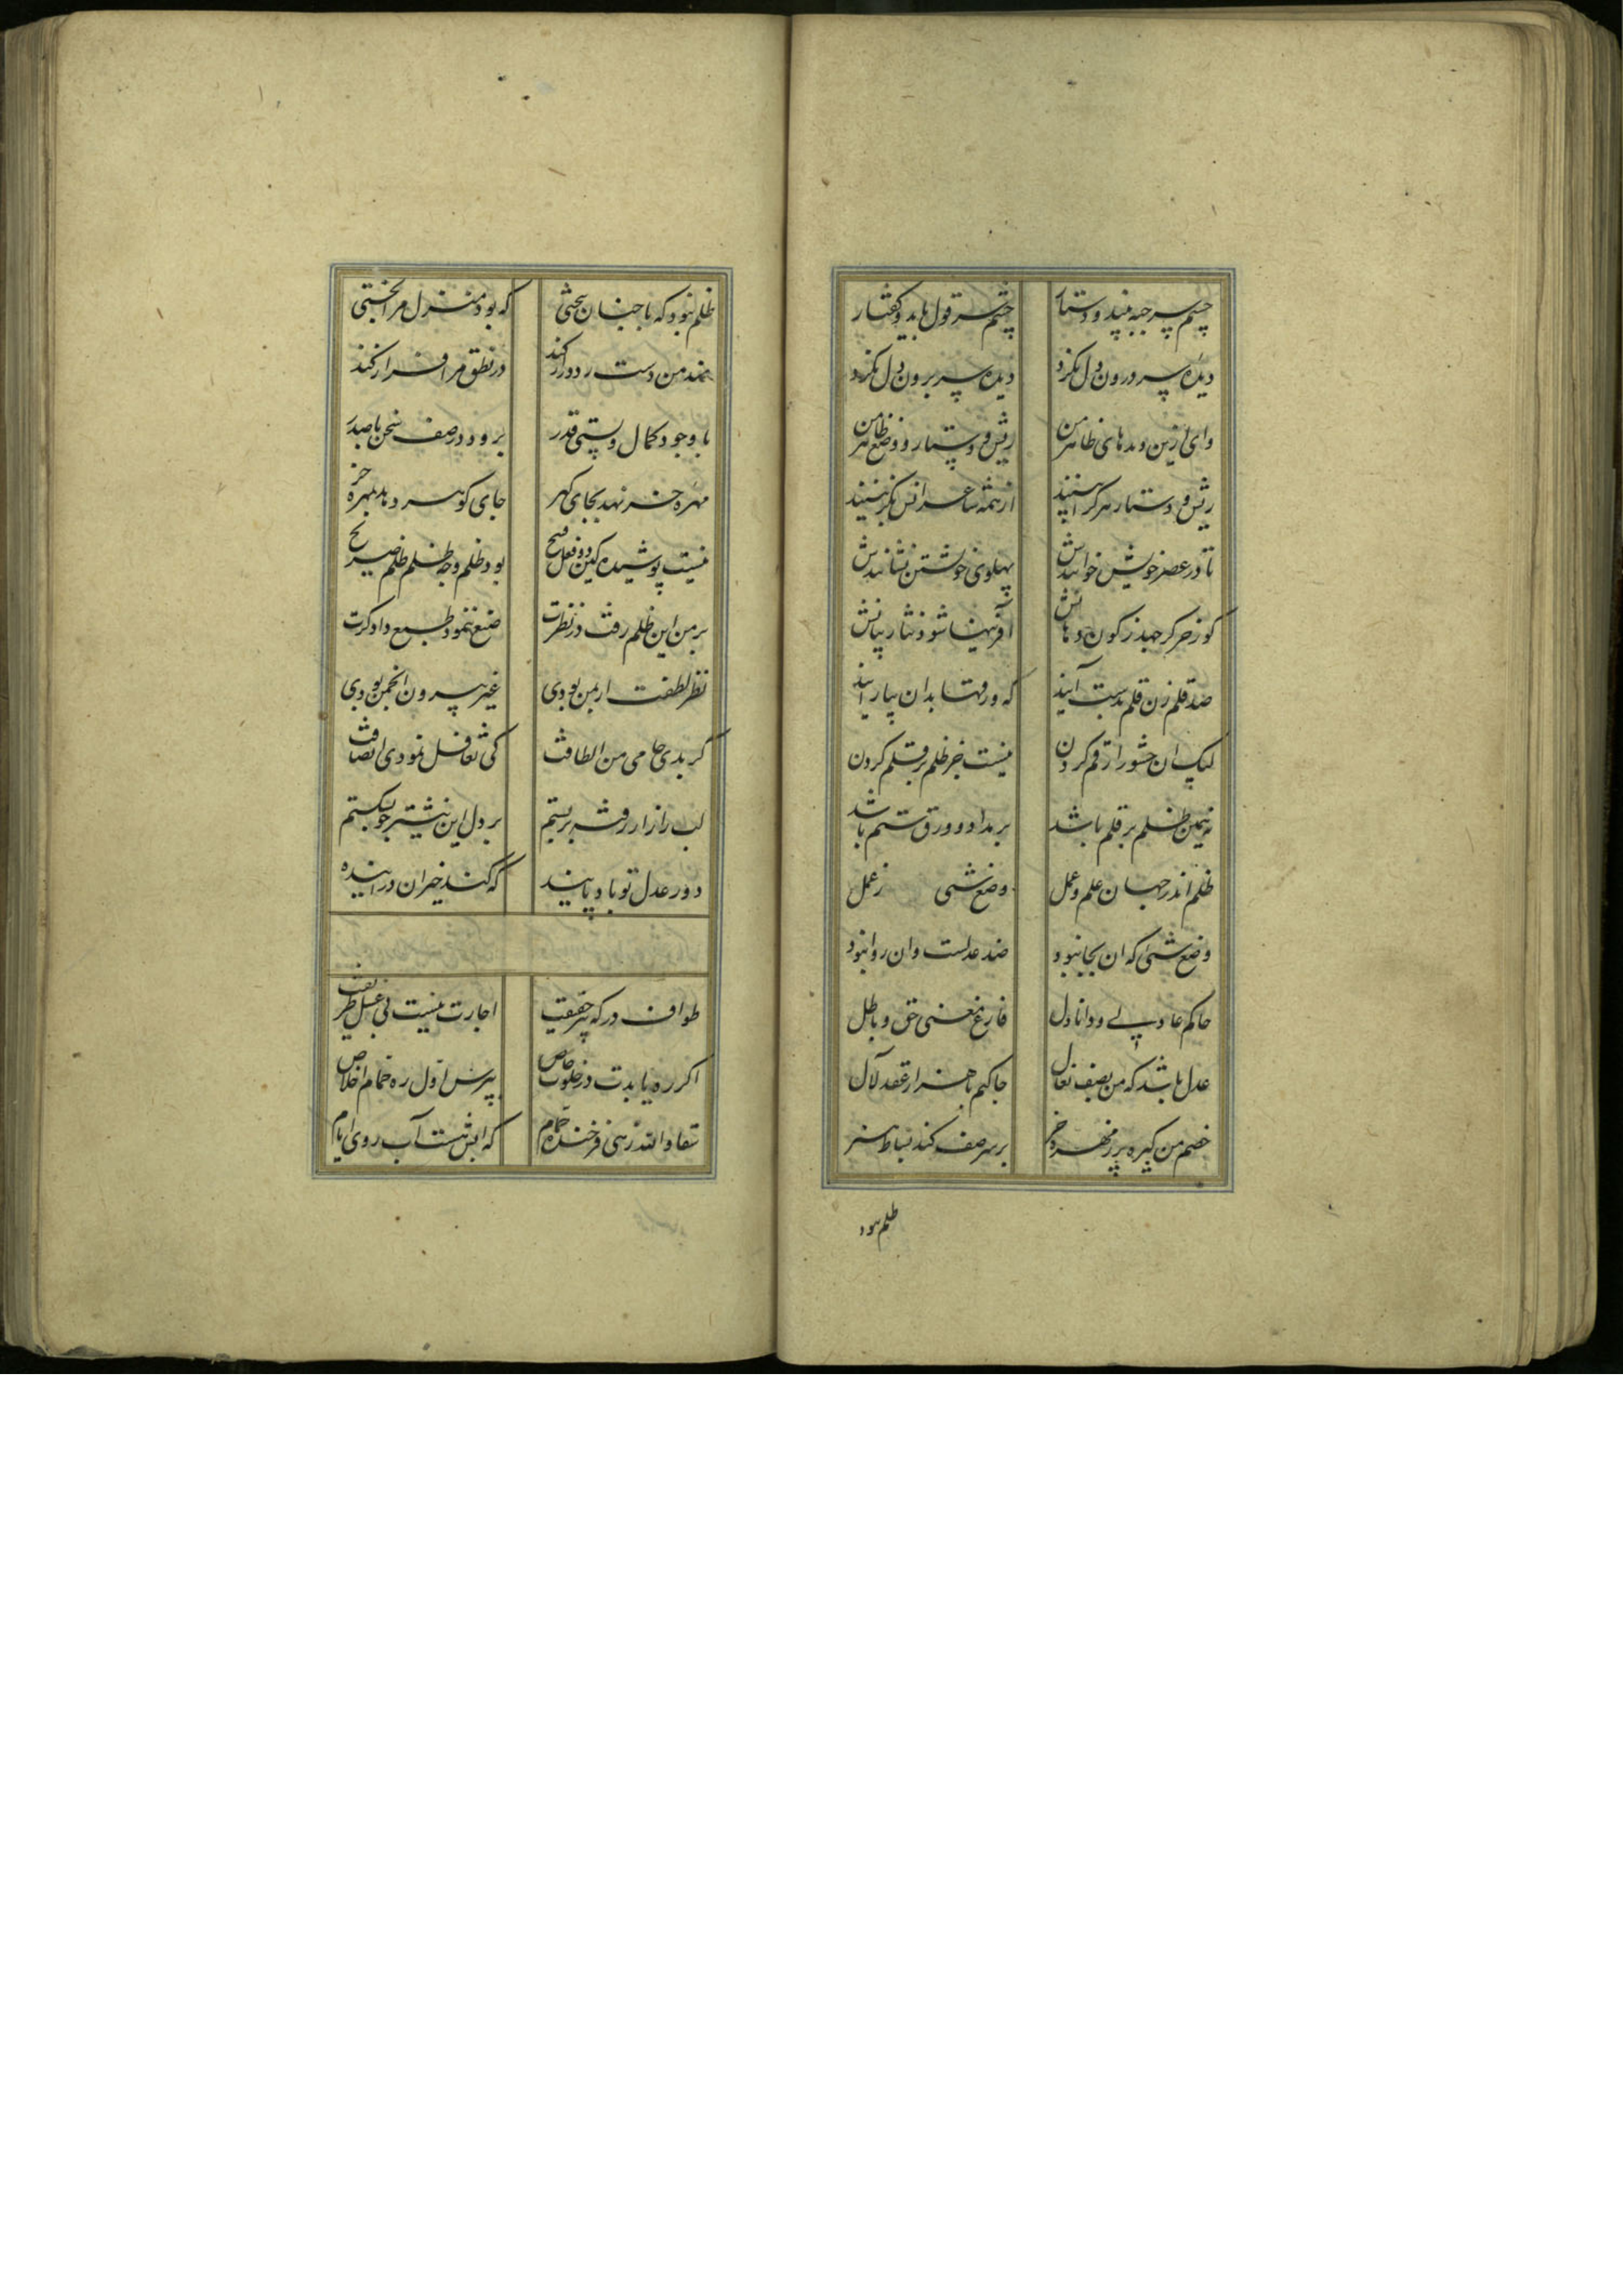 چشم سر جبه بیند و دستار چشم سر قول باید و گفتار
دیده سر درون دل نکرد دیده سر برون دل نکرد
وای ازین دیدهای ظاهر من ریش و دستار و وضع ظاهر من
ریش و دستار هر که را بینند از همه شاعرانش نگزینند
تا در عصر خویش خوانندش پهلوی خویشتن نشانندش
کوز خر گر جهد ز کون دهانش آفرینها شود نثار بیانش
صد قلم زن قلم بدست آیند که ورقها بدان بیارایند
لیک آن حشو را رقم کردن نیست جز ظلم بر قلم کردن
نه همین ظلم بر قلم باشد بر مداد و ورق ستم باشد
ظلم اندر جهان علم و عمل وضع شیی ز عمل
وضع شیی که آن بجا نبود ضد عدلست و آن روا نبود
حاکم عادلی و دانا دل فارغ معنی حق و باطل
عدل باشد که من بصف نعال جا کنم با هزار عقد لآل
خصم من کیره پر ز مهره خر بر سر صف کند بساط هنر
ظلم بود
ظلم نبود که با چنان بختی که بود منزل مرا تختی
نهد من دست رد دراز کند در نطق مرا فراز کند
با وجود کمال و پستی قدر برود در صف سخن تا صدر
مهره خر نهد بجای گهر جای گوهر دهد بمهره خر
نیست پوشیده کین دو فعل قبیح بود ظلم و چه ظلم ظلم صریح
بر من این ظلم رفت در نظرت منع ننمود طبع دادگرت
نظر لطفت ار بمن بودی غیر بیرون انجمن بودی
گر بدی حامی من الطافت کی تغافل نمودی انصافت
لب راز ار رفته بربستم بر دل این نیشتر چو بشکستم
دور عدل تو باد پاینده که کند جبران در آینده
طواف درگه پیر حقیقت اجازت نیست بی غسل طریقت
اگر ره بایدت در خلوت خاص بپرس اول ره حمام اخلاص
تعاد الله زهی فرخنده حمام که آبش شست آب روی ایام